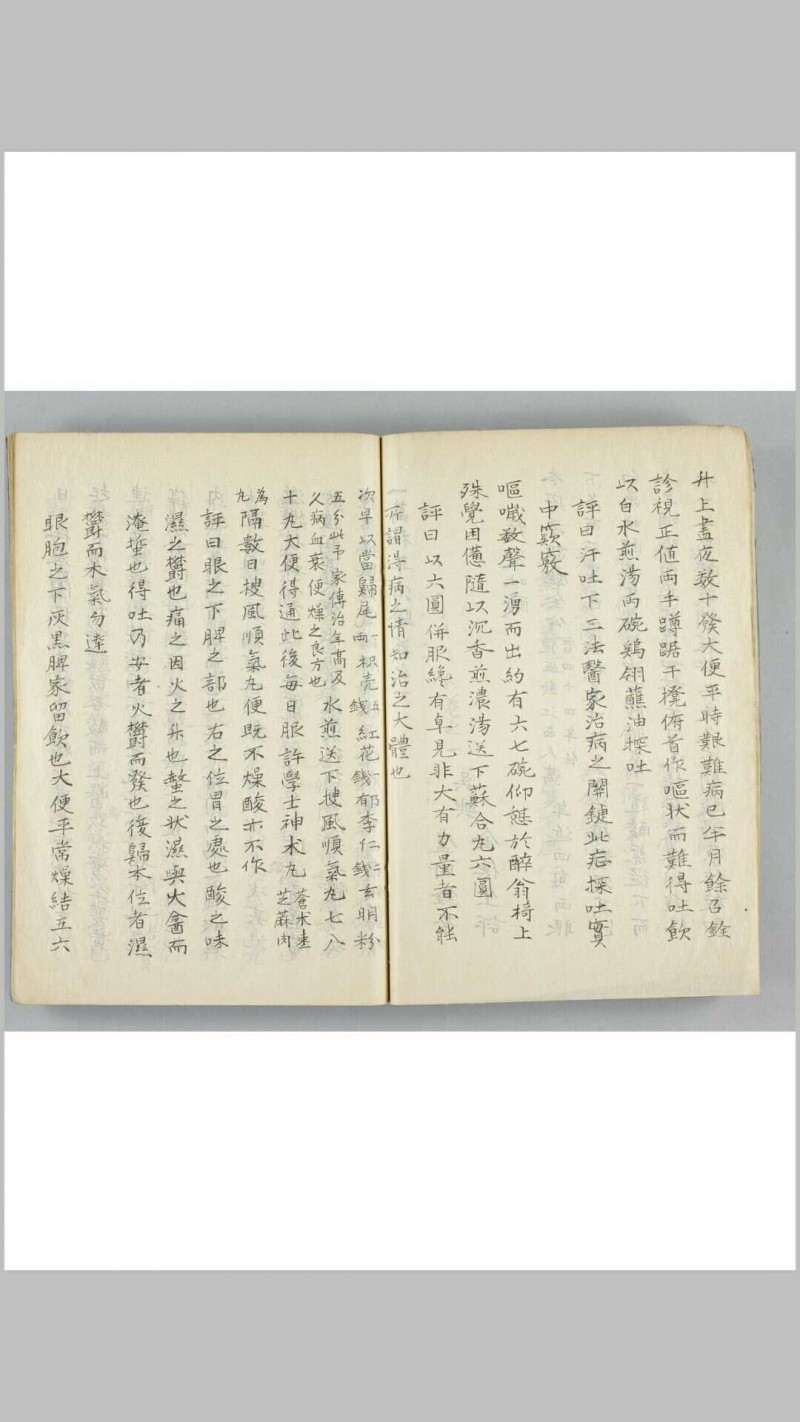 升上晝夜数十發大便平時艱難病已年月餘召銓
診視正值两手蹲踞于櫈俯首作嘔状而難得吐飲
以白水煎荡两碗鷄翎蘸油探吐
評曰汗吐下三法醫家治病之關鍵此症探吐實
中窽竅
嘔噦数聲一湧而出約有六七碗仰於醉翁椅上
殊覺困憊隨以沉香煎濃荡送下蘇合丸六圓
評曰以六圓併服纔有卓見非大有力量者不能
一所謂得病之情知治之大體也
次早以當歸尾一两枳壳五錢紅花一錢郁李仁二錢玄明粉
五分此予家傳治年高及
久病血衰便燥之良方也水煎送下搜風順氣丸七八
十丸大便得通此後每日服許學士神术丸蒼术
芝蔴肉
為
丸隔数日搜風順氣丸便既不燥酸亦不作
評曰眼之下脾之部也右之位胃之處也酸之味
濕之欝也痛之因火之升也螯之状濕與火畜而
淹蜇也得吐乃安者火欝而發也後歸本位者濕
欝而水氣勿達
眼胞之下灰黑脾家留飲也大便平常燥結五六